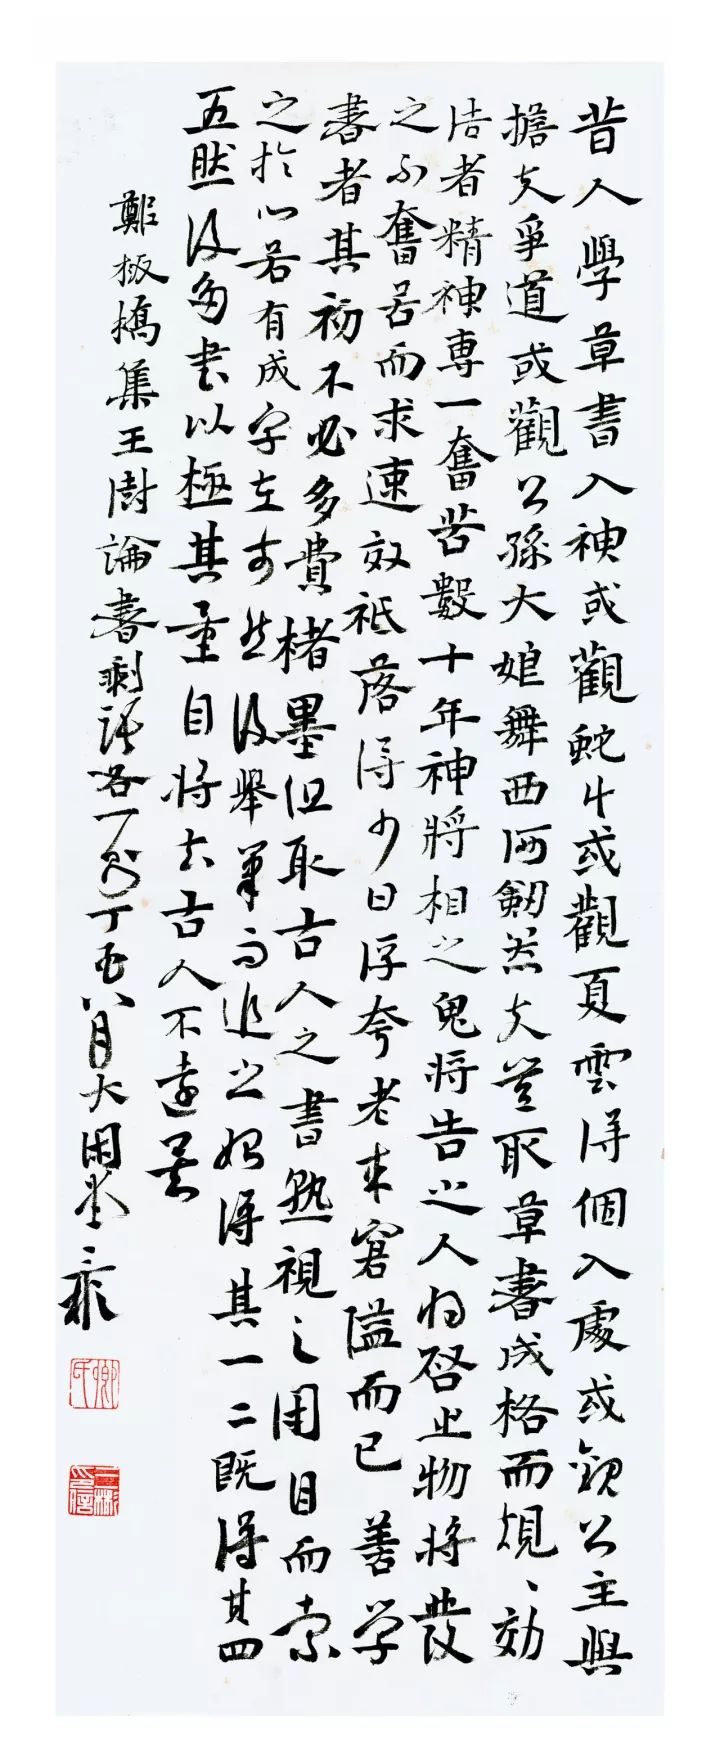 昔人學草書入神或觀蛇斗或觀夏雲得個入處或觀公主與
擔夫爭道或觀公孫大娘舞西河劍器夫豈取草書成格而規〻効
法者精神專一奮苦數十年神將相之鬼將告之人將啓之物將發
之不奮苦而求速效祗落得少日浮夸老來窘隘而已 善学
書者其初不必多費楮墨但取古人之書熟視之閉目而索
之於心若有成字在前然後舉筆而追之始得其一二既得其四
五然後多書以極其量自將去古人不遠矣
鄭板橋集王澍論書剩語各一則丁酉八月大困堂